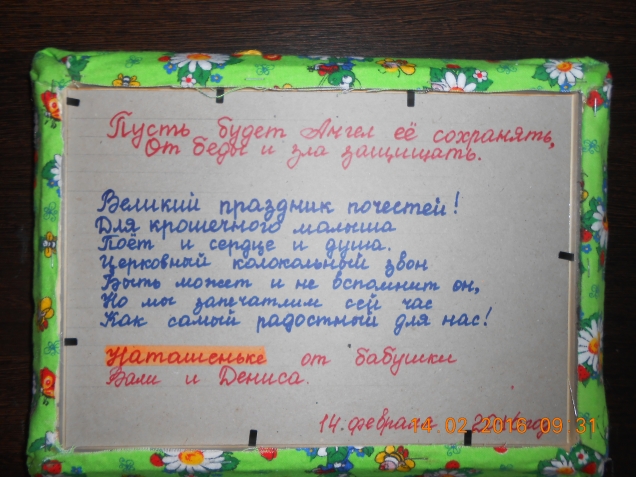 Пусть будет Ангел её сохранять,
От беды и зла защищать.
Великий праздник почестей!
Для крошечного малыша
Поёт и сердце и душа.
Церковный колокольный звон
Быть может и не вспомнит он,
Но мы запечатлим сей час
Как самый радостный для нас!
Наташеньке от бабушки
Вали и Дениса.
14. февраля
14 02 2016 09 31